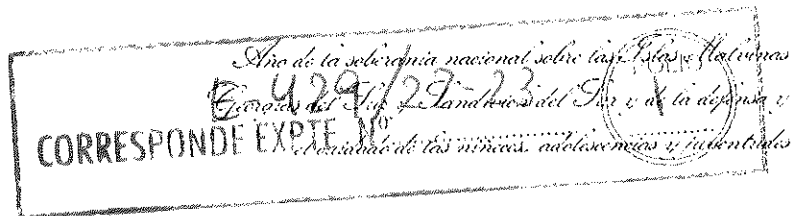 Año de la soberanía nacional sobre las Islas Malvinas
Georgias del Sur, Sandwich del Sur y de la defensa y
el cuidado de las niñeces, adolescencias y juventudes
CORRESPONDE EXPTE Nº
E-429/22-23
FOLIO
1